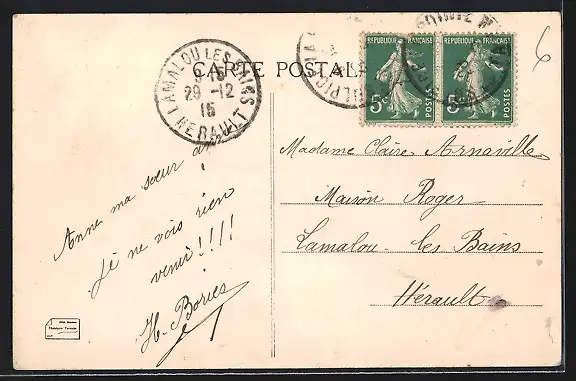 CARTE POSTALE
LAMALOU LES BAINS
29 -12
15
HERAULT
REPUBLIQUE FRANÇAISE
5c
POSTES
REPUBLIQUE FRANÇAISE
5c
POSTES
6
Anne ma sœur
je ne vois rien
venir!!!!
H. Bories
Madame Claire Arnaville
Maison Roger
Lamalou-les Bains
Hérault